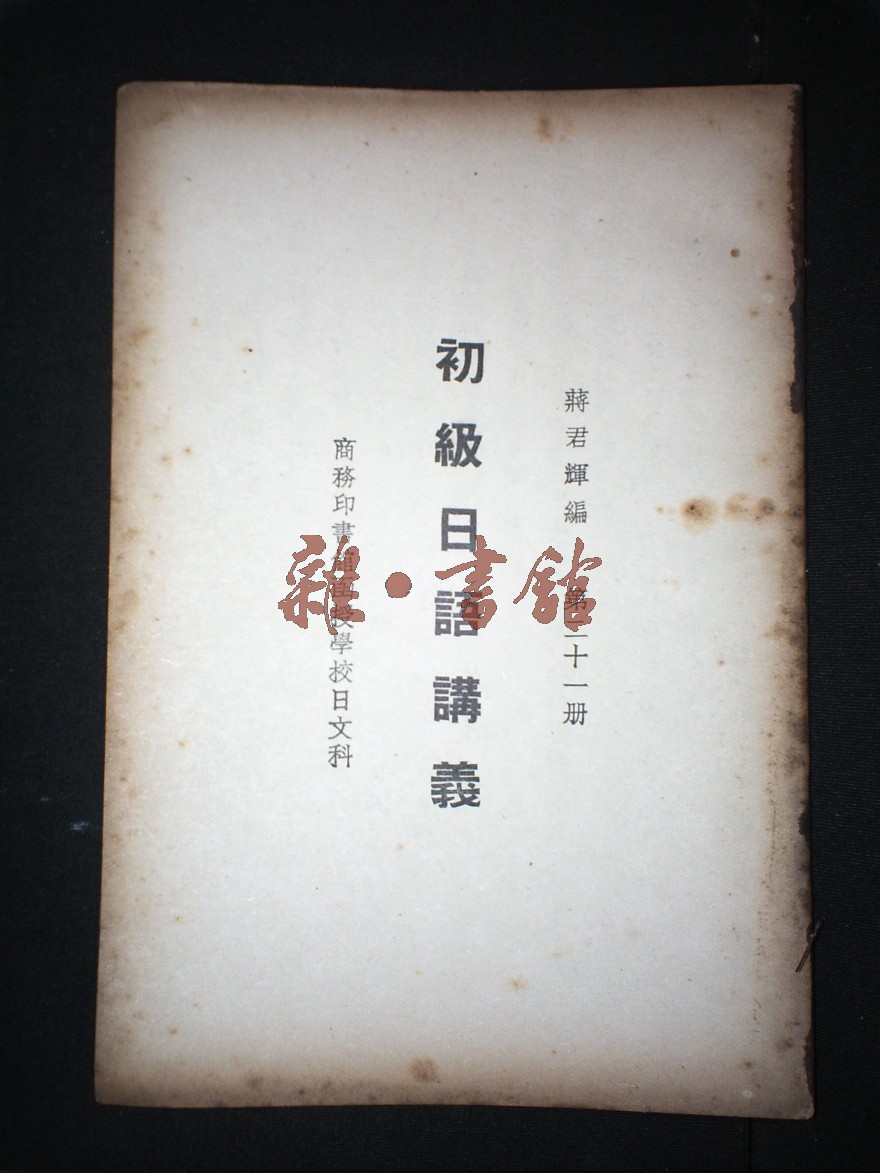 蔣君輝編 第二十一册
初級日語講義
商務印書館函授學校日文科
雜·書館